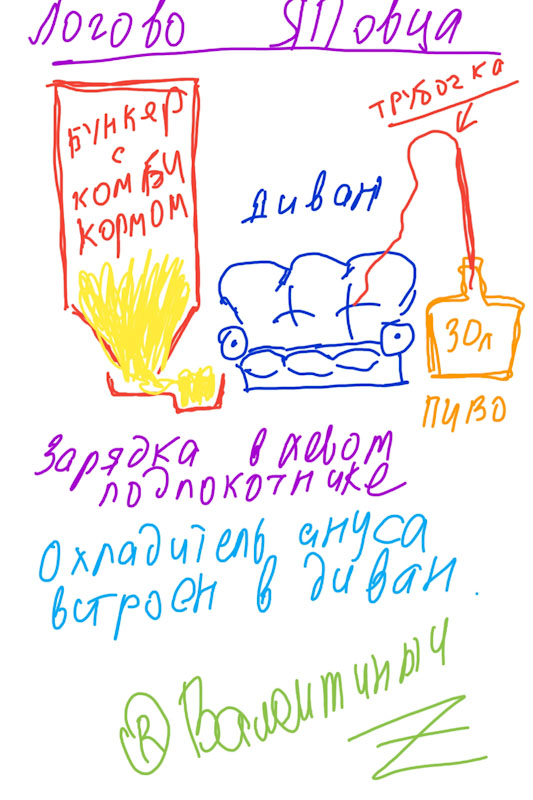 Логово ЯПовца
БУНКЕР
с
КОМБИ
КОРМОМ
ТРУБОЧКА
ДИВАН
30л
ПИВО
Зарядка в левом
подлокотнике
Охладитель ануса
встроен в диван.
® Валентиныч